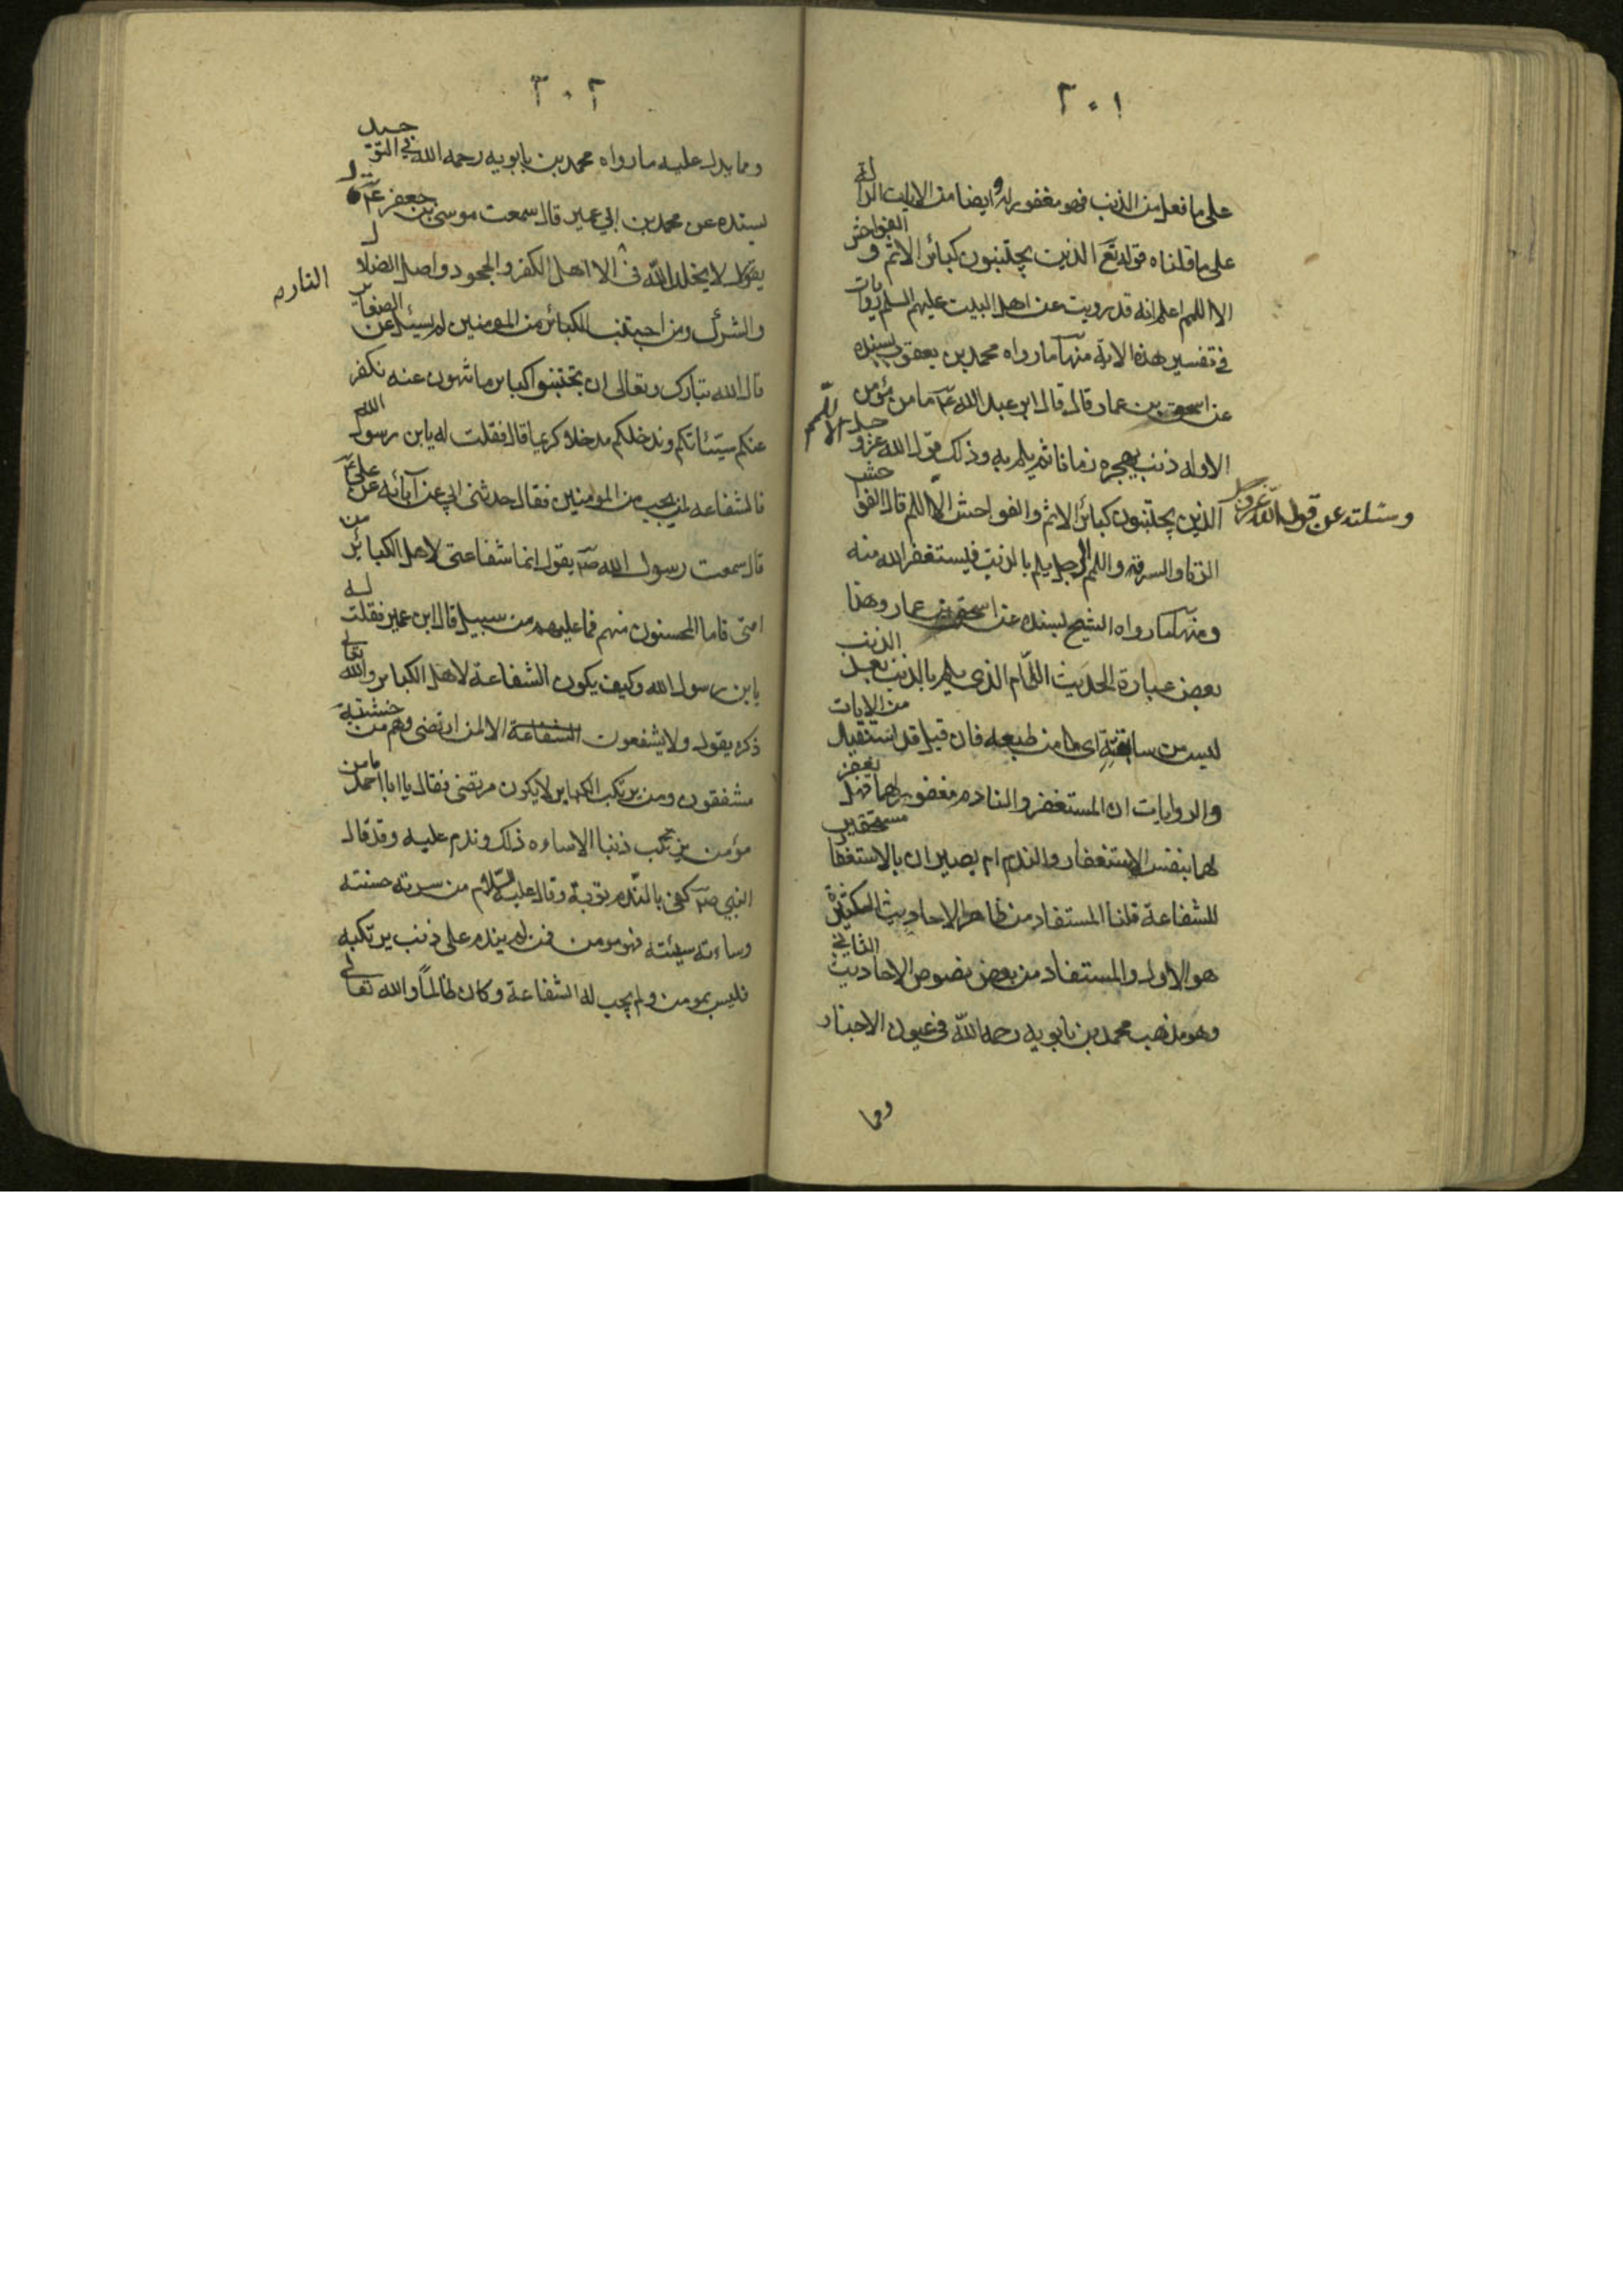 ٢٠١
على ما فعل من الذنب فهو مغفور له وايضا من الايات الدالة
على ما قلناه قوله تع الذين يجتنبون كبائر الاثم و الفواحش
الا اللمم اعلم انه قد رويت عن اهل البيت عليهم السلم روايات
في تفسير هذه الاية منها ما رواه محمد بن يعقوب بسنده
عن اسحق بن عمار قال قال ابو عبد الله ع ما من مؤمن
الا وله ذنب يهجره زمانا ثم يلم به وذلك قول الله عز و جل الا اللمم
وسئلته عن قول الله عز وجل الذين يجتنبون كبائر الاثم والفواحش الا اللمم قال الفواحش
الزنا والسرقة واللمم الرجل يلم بالذنب فيستغفر الله منه
ومنها ما رواه الشيخ بسنده عن اسحق بن عمار وهذا
بعض عبارة الحديث اللمام الذي يلم بالذنب بعد الذنب
ليس من سابقته اى ما من طبعه فان قيل قد استفيد من الايات
والروايات ان المستغفر والنادم مغفور لهما فهل يغفر
لهما بنفس الاستغفار والندم ام يصيران بالاستغفا مستحقين
للشفاعة قلنا المستفاد من ظاهر الاحاديث المتكثرة
هو الاول والمستفاد من بعض نصوص الاحاديث الثاني
وهو مذهب محمد بن بابويه رحمه الله في عيون الاخبار
ومما
٢٠٢
ومما يدل عليه ما رواه محمد بن بابويه رحمه الله في التوحيد
بسنده عن محمد بن ابي عمير قال سمعت موسى بن جعفر ع
يقول لا يخلد الله في النار الا اهل الكفر والجحود واهل الضلال
والشرك ومن اجتنب الكبائر من المومنين لم يسئل عن الصغائر
قال الله تبارك وتعالى ان تجتنبوا كبائر ما تنهون عنه نكفر
عنكم سيئاتكم وندخلكم مدخلا كريما قال فقلت له يابن رسول الله
فالشفاعه لمن يجب من المومنين فقال حدثني ابي عن آبائه عن علي ع
قال سمعت رسول الله ص يقول انما شفاعتى لاهل الكبائر من
امتى فاما المحسنون منهم فما عليهم من سبيل قال ابن عمير فقلت له
يابن رسول الله وكيف يكون الشفاعة لاهل الكبائر والله تعالى
ذكره يقول ولا يشفعون الشفاعة الا لمن ارتضى وهم من خشيته
مشفقون ومن يرتكب الكبائر لا يكون مرتضى فقال يا ابا احمد ما من
مؤمن يرتكب ذنبا الا ساءه ذلك وندم عليه وقد قال
النبي ص كفى بالندم توبة وقال عليه السلام من سرته حسنته
وساءته سيئته فهو مومن فمن لم يندم على ذنب يرتكبه
فليس بمومن ولم يجب له الشفاعة وكان ظالما والله تعالى